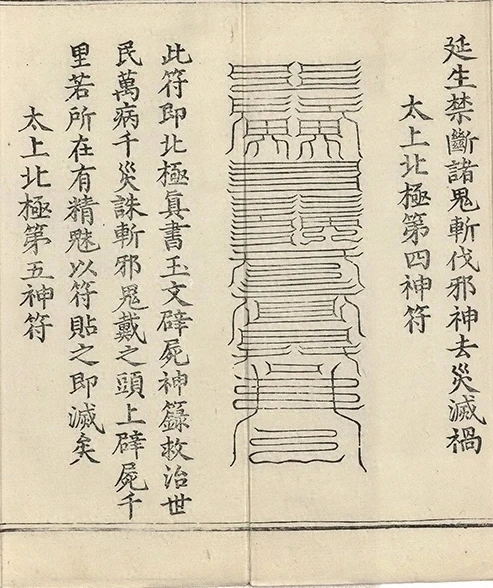 延生禁斷諸鬼斬伐邪神去災滅禍
太上北極第四神符
此符即北極真書玉文辟屍神籙救治世
民萬病千災誅斬邪鬼戴之頭上辟屍千
里若所在有精魅以符貼之即滅矣
太上北極第五神符